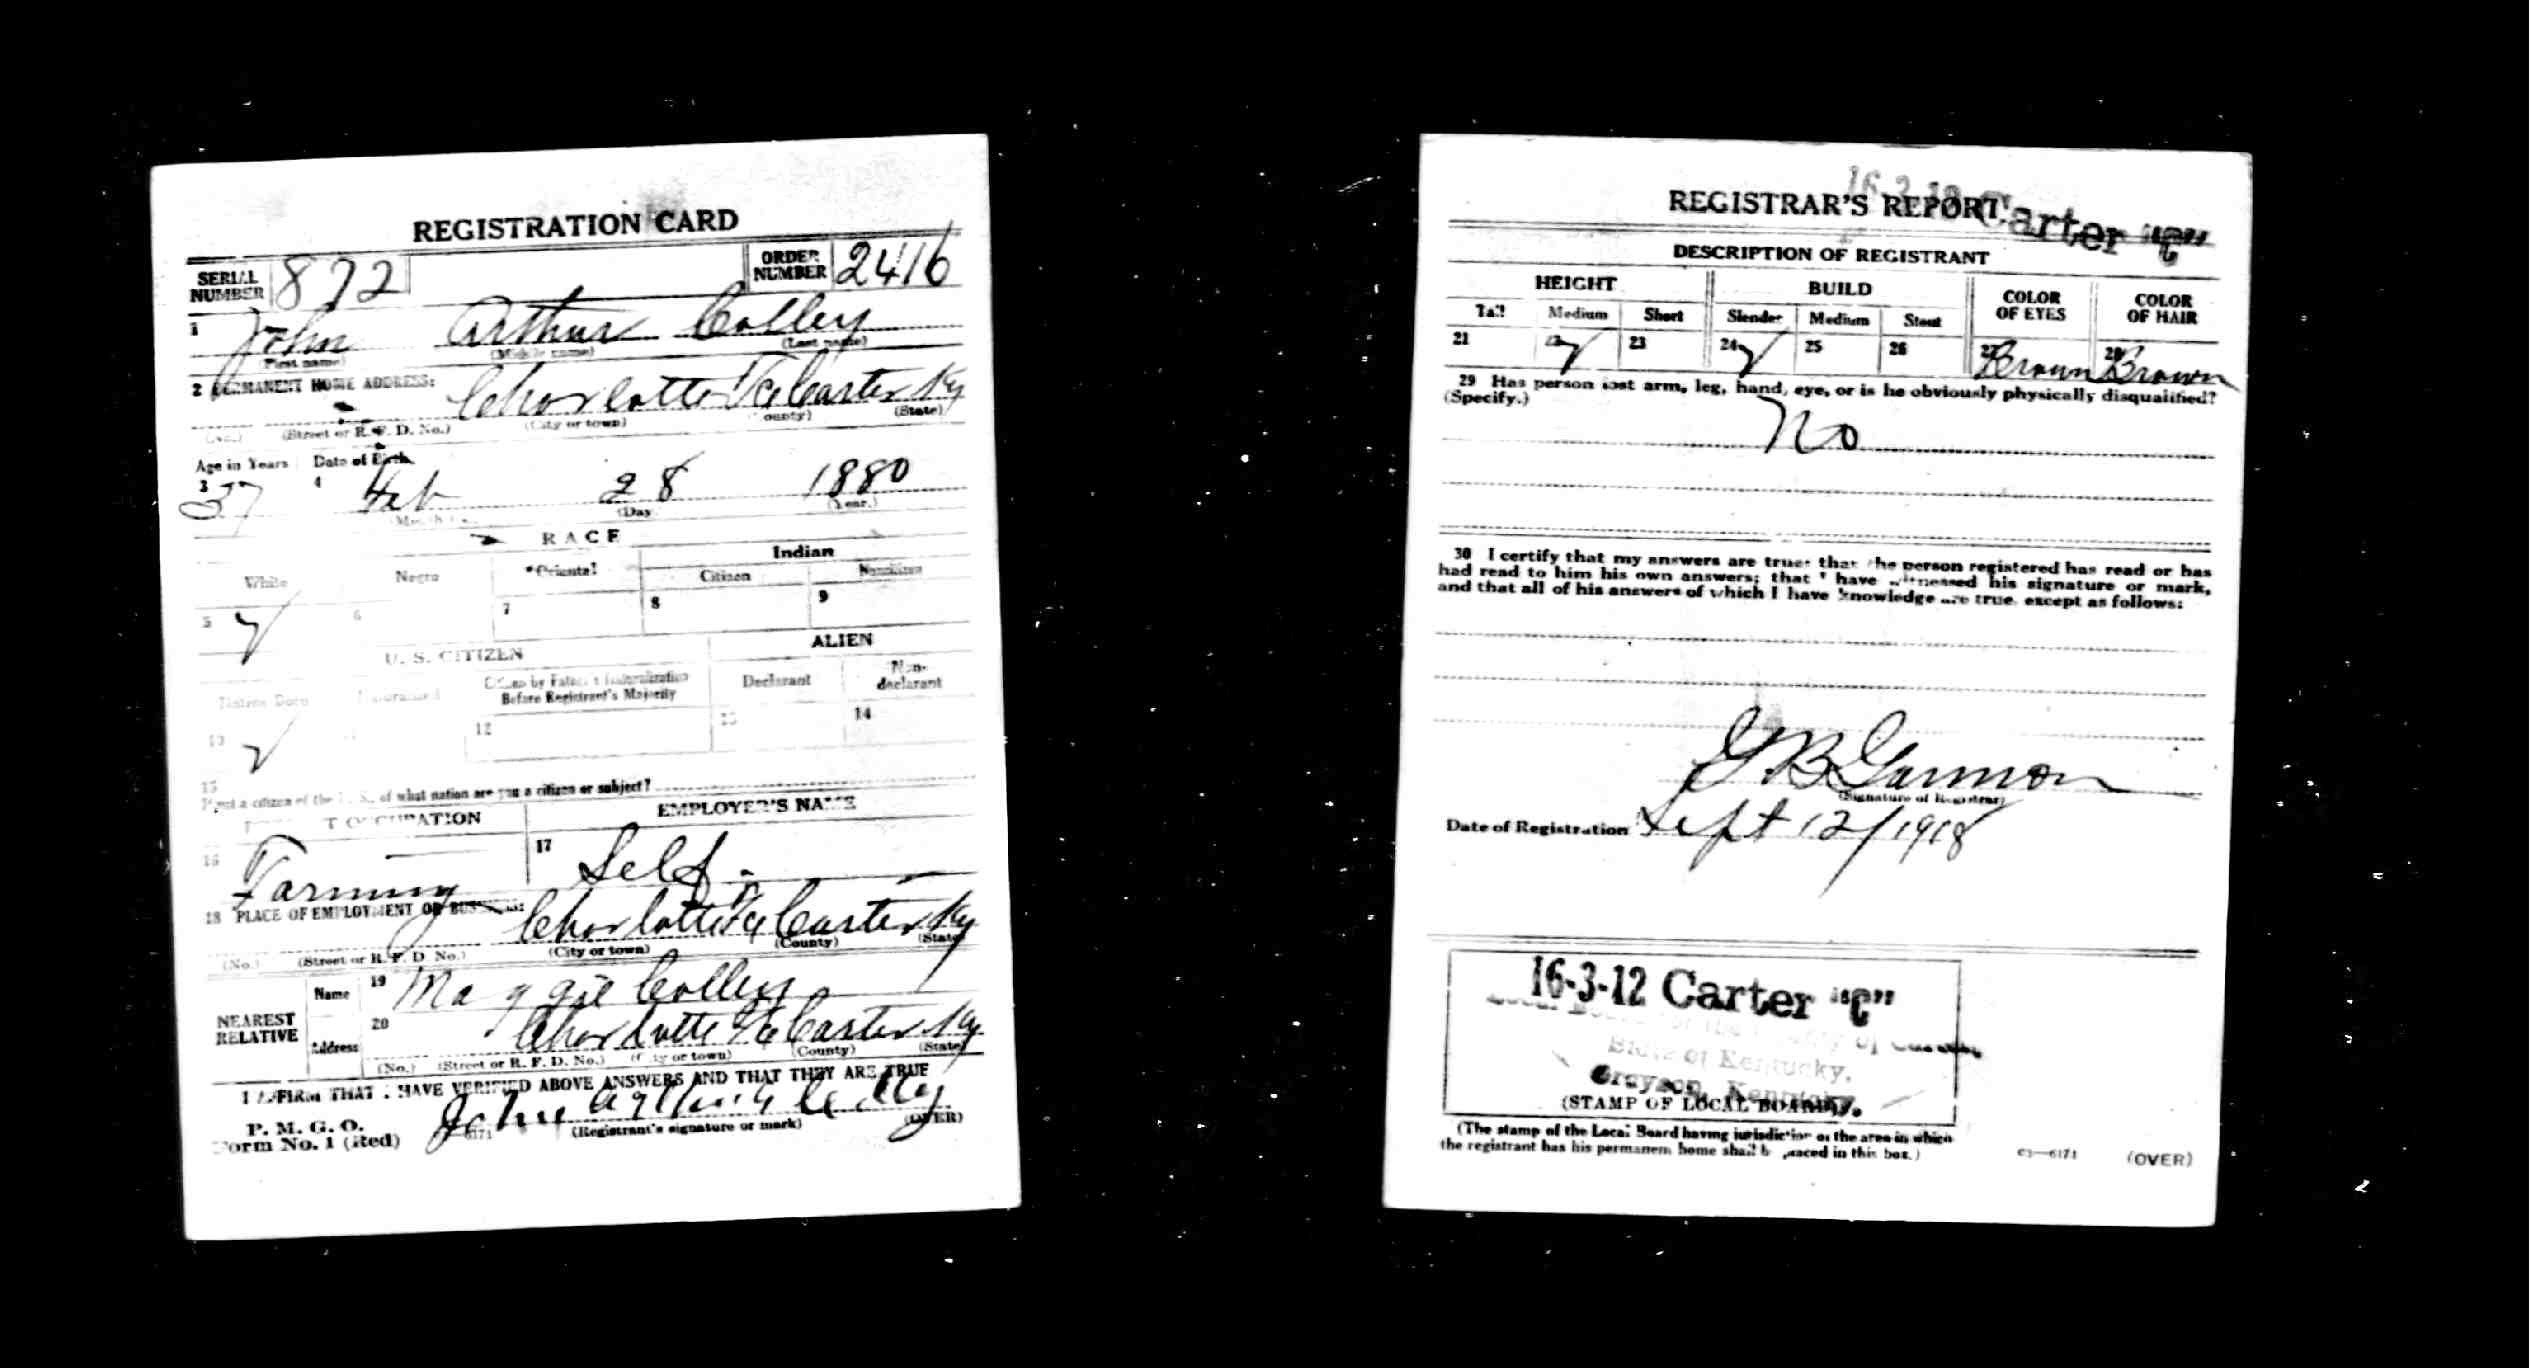 REGISTRATION CARD
SERIAL NUMBER 872 ORDER NUMBER 2416
1 John Arthur Colley
(First name) (Middle name) (Last name)
2 PERMANENT HOME ADDRESS: Charlotte Fc Carter Ky
(No.) (Street or R. F. D. No.) (City or town) (County) (State)
Age in Years Date of Birth
3 37 4 Feb 28 1880
(Day) (Year.)
RACE
White Negro *Oriental Indian
Citizen Noncitizen
5 6 7 8 9
U. S. CITIZEN ALIEN
Native Born Naturalized Citizen by Father's Naturalization Before Registrant's Majority Declarant Non-declarant
10 12 13 14
15
If not a citizen of the U. S., of what nation are you a citizen or subject?
PRESENT OCCUPATION EMPLOYER'S NAME
16 Farming 17 Self.
18 PLACE OF EMPLOYMENT OR BUSINESS: Charlotte Fc Carter Ky
(No.) (Street or R. F. D. No.) (City or town) (County) (State)
NEAREST RELATIVE Name 19 Maggie Colley
Address 20 Charlotte Fc Carter Ky
(No.) (Street or R. F. D. No.) (City or town) (County) (State)
I AFFIRM THAT I HAVE VERIFIED ABOVE ANSWERS AND THAT THEY ARE TRUE
P. M. G. O.
Form No. 1 (Red) John Arthur Colley
(Registrant's signature or mark) (OVER)
16-3-12 Carter "C"
REGISTRAR'S REPORT
DESCRIPTION OF REGISTRANT
HEIGHT BUILD COLOR OF EYES COLOR OF HAIR
Tall Medium Short Slender Medium Stout
21 22 23 24 25 26 27 Brown 28 Brown
29 Has person lost arm, leg, hand, eye, or is he obviously physically disqualified?
(Specify.)
No
30 I certify that my answers are true; that the person registered has read or has
had read to him his own answers; that I have witnessed his signature or mark,
and that all of his answers of which I have knowledge are true, except as follows:
G B Garmon
(Signature of Registrar)
Date of Registration Sept 12/1918
16-3-12 Carter "C"
Local Board for the County of Carter
State of Kentucky,
Grayson, Kentucky.
(STAMP OF LOCAL BOARD)
(The stamp of the Local Board having jurisdiction of the area in which
the registrant has his permanent home shall be placed in this box.)
03—6171 (OVER)